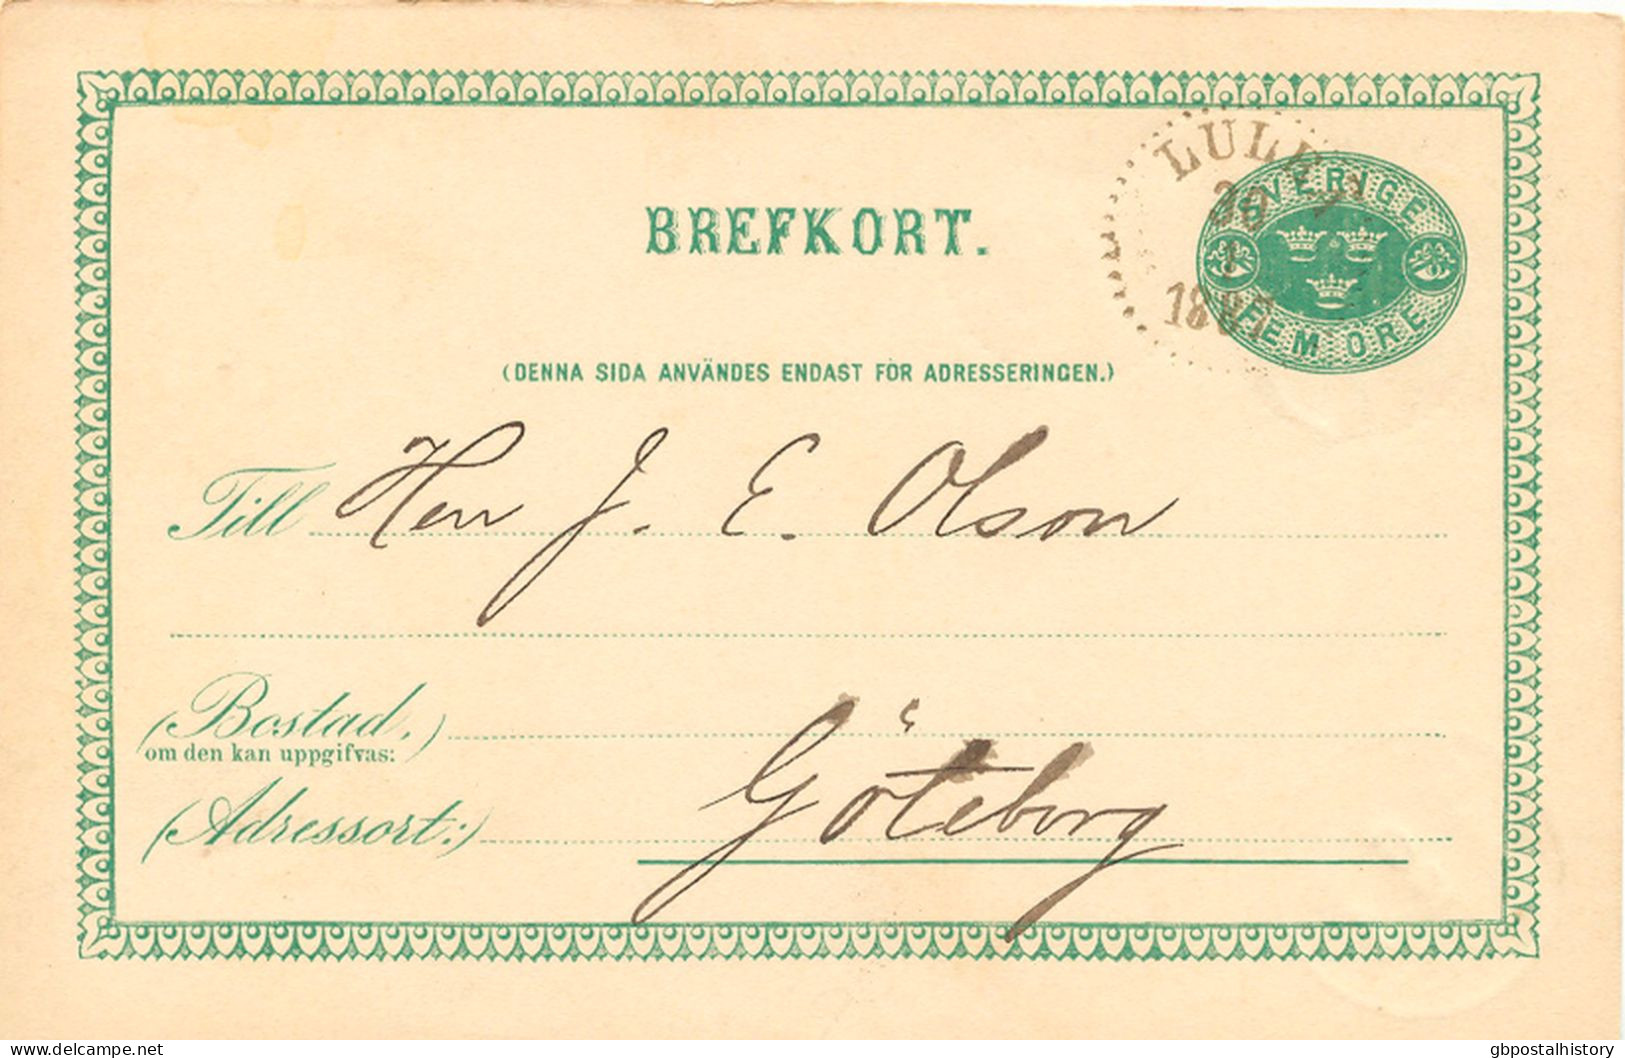 BREFKORT.
SVERIGE
FEM ÖRE
(DENNA SIDA ANVÄNDES ENDAST FÖR ADRESSERINGEN.)
Till Herr J. E. Olson
(Bostad,)
om den kan uppgifvas:
(Adressort:) Göteborg
delcampe.net
gbpostalhistory